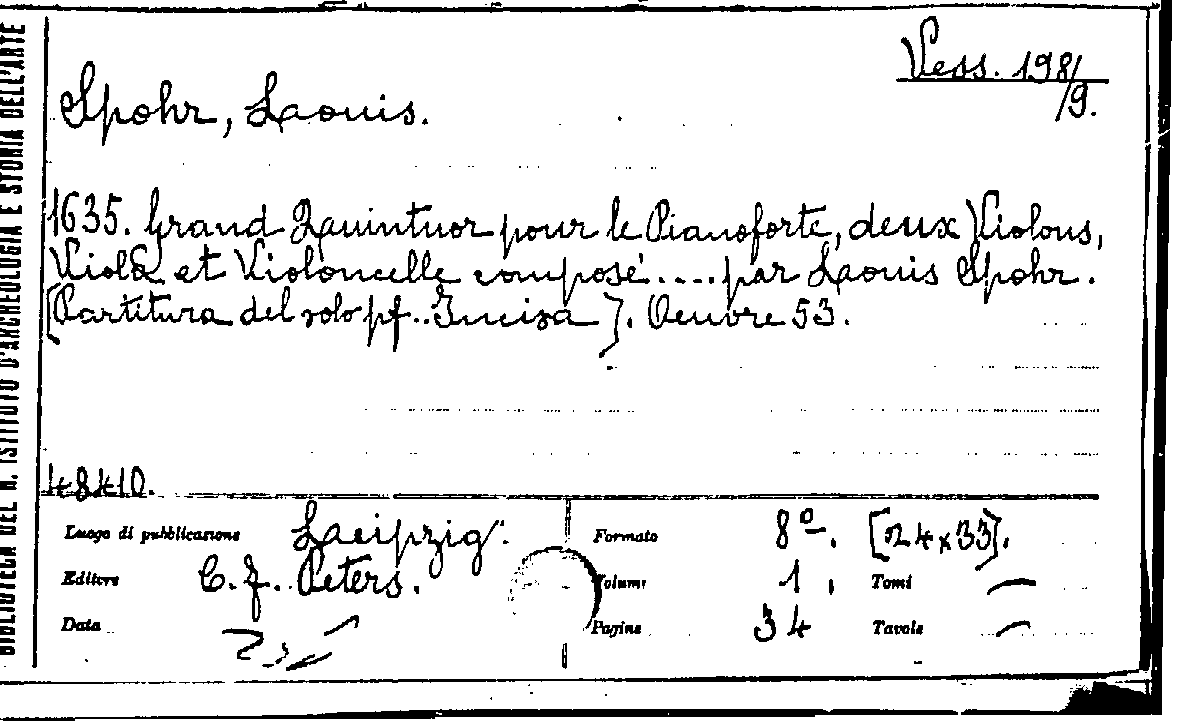 BIBLIOTECA DEL R. ISTITUTO D'ARCHEOLOGIA E STORIA DELL'ARTE
Vess. 198/9.
Spohr, Louis.
1635. Grand Quintuor pour le Pianoforte, deux Violons,
Viola et Violoncelle composé.... par Louis Spohr.
[Partitura del solo pf.. Incisa]. Oeuvre 53.
48410.
Luogo di pubblicazione Leipzig.
Editore C. F. Peters.
Data
Formato 8º. [24x33].
Volumi 1, Tomi —
Pagine 34 Tavole —